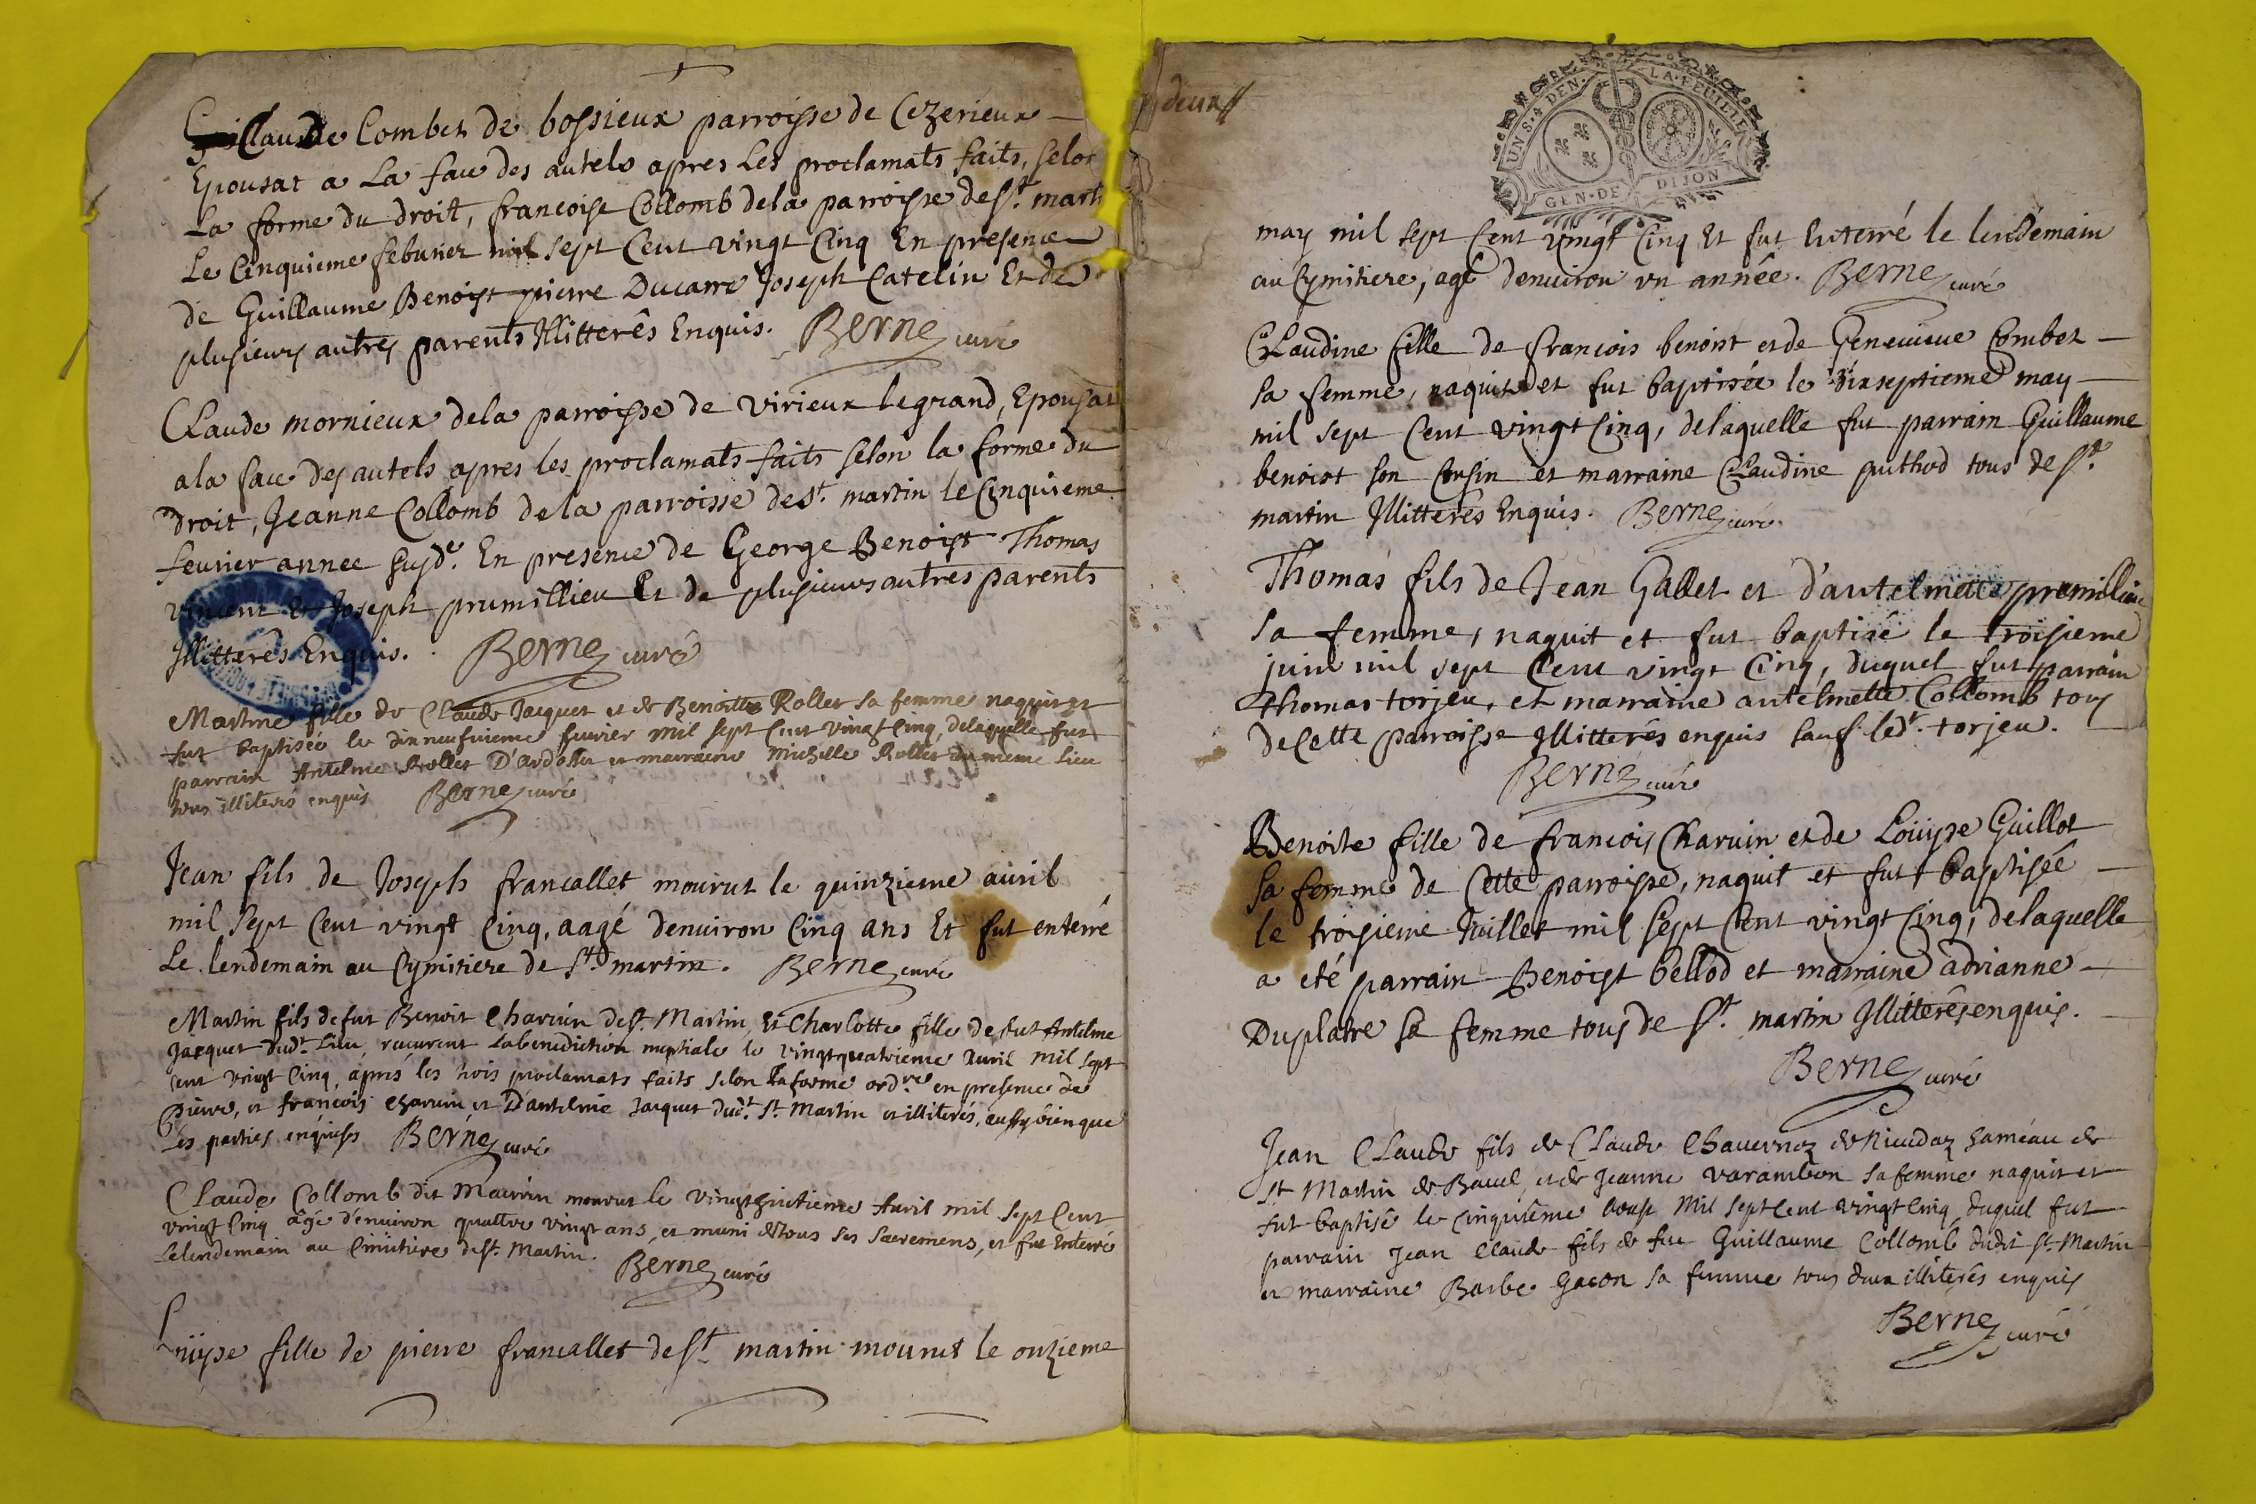 Claude Combet de bossieux parroisse de Cezerieux
Epousat a La face des autels apres Les proclamats faits, selon
La forme du droit, francoise Collomb dela parroisse de st. mart
Le Cinquieme feburier mil sept Cent vingt Cinq En presence
de Guillaume Benoist pierre Ducarre Joseph Catelin Et de
plusieurs autres parents Illitterés Enquis. Berne curé
Claude mornieux dela parroisse de virieux le grand, Epousat
a la face des autels apres les proclamats faits selon la forme du
droit, Jeanne Collomb de la parroisse de st. martin le Cinquieme
feurier annee susde. En presence de George Benoist Thomas
vincent Et Joseph prumillieu Et de plusieurs autres parents
Illitterés Enquis. Berne curé
Martine fille de Claude Jacquet et de Benoitte Rollet sa femme naquit et
fut baptisée le dixneufvieme fevrier mil sept Cent vingt Cinq, delaquelle fut
parrain Antelme Rollet D'ardosset et marraine Michelle Rollet du meme lieu
tous illiterés enquis Berne curé
Jean fils de Joseph francallet mourut le quinzieme auril
mil sept Cent vingt Cinq, aagé denuiron Cinq ans Et fut enterré
Le lendemain au Cymitiere de st. martin. Berne curé
Martin fils de fut Benoit Charvin de st. Martin, Et Charlotte fille de fut Antelme
Jacquet dudt. Lieu, recurent la benediction nuptiale le vingtquatrieme Avril mil sept
cent vingt Cinq, aprés les trois proclamats faits selon la forme ordre en presence de
Pierre, et francois Charvin et D'antelme Jacquet dudt. st. Martin et illiterés, aussy bien que
Les parties enquises Berne curé
Claude Collomb dit Mauvin mourut le vingt huitieme Avril mil sept Cent
vingt Cinq âgé d'environ quattre vingt ans, et muni de tous ses sacremens, et fut Enterré
le lendemain au Cimitiere de st. Martin. Berne curé
Louyse fille de pierre francallet de st. martin mourut le onzieme
deux
UN S. 4 DEN. LA FEUILLE
GEN. DE DIJON
may mil sept Cent vingt Cinq Et fut Enterré le lendemain
au Cymitiere, agé denuiron un année. Berne curé
Claudine fille de francois benoist et de Geneuieue Combet
sa femme, naquit et fut baptisée le dixseptieme may
mil sept Cent vingt Cinq, delaquelle fut parrain Guillaume
benoist son Cousin et marraine Claudine puthod tous de st.
martin Illitterés Enquis. Berne curé
Thomas fils de Jean Gallet et d'antelmette premillieu
sa femme, naquit et fut baptisé le troisieme
juin mil sept Cent vingt Cinq, duquel fut parrain
Thomas torjeu, et marraine antelmette Collomb tous
de Cette parroisse Illitterés enquis sauf ledt. torjeu.
Berne curé
Benoite fille de francois Charuin et de Louyse Guillot
sa femme de Cette parroisse, naquit et fut baptisée
le troisieme Juillet mil sept Cent vingt Cinq, delaquelle
a eté parrain Benoist bellod et marraine adrianne
Duplatre sa femme tous de st. martin Illitterés enquis.
Berne curé
Jean Claude fils de Claude Chavernoz de hameau de
st Martin de Bavel, et de Jeanne varambon sa femme naquit et
fut baptisé le cinquiême Aoust Mil sept Cent vingt Cinq, duquel fut
parrain Jean Claude fils de fut Guillaume Collomb dudit st. Martin
et marraine Barbe Gacon sa femme tous deux illiterés enquis
Berne curé